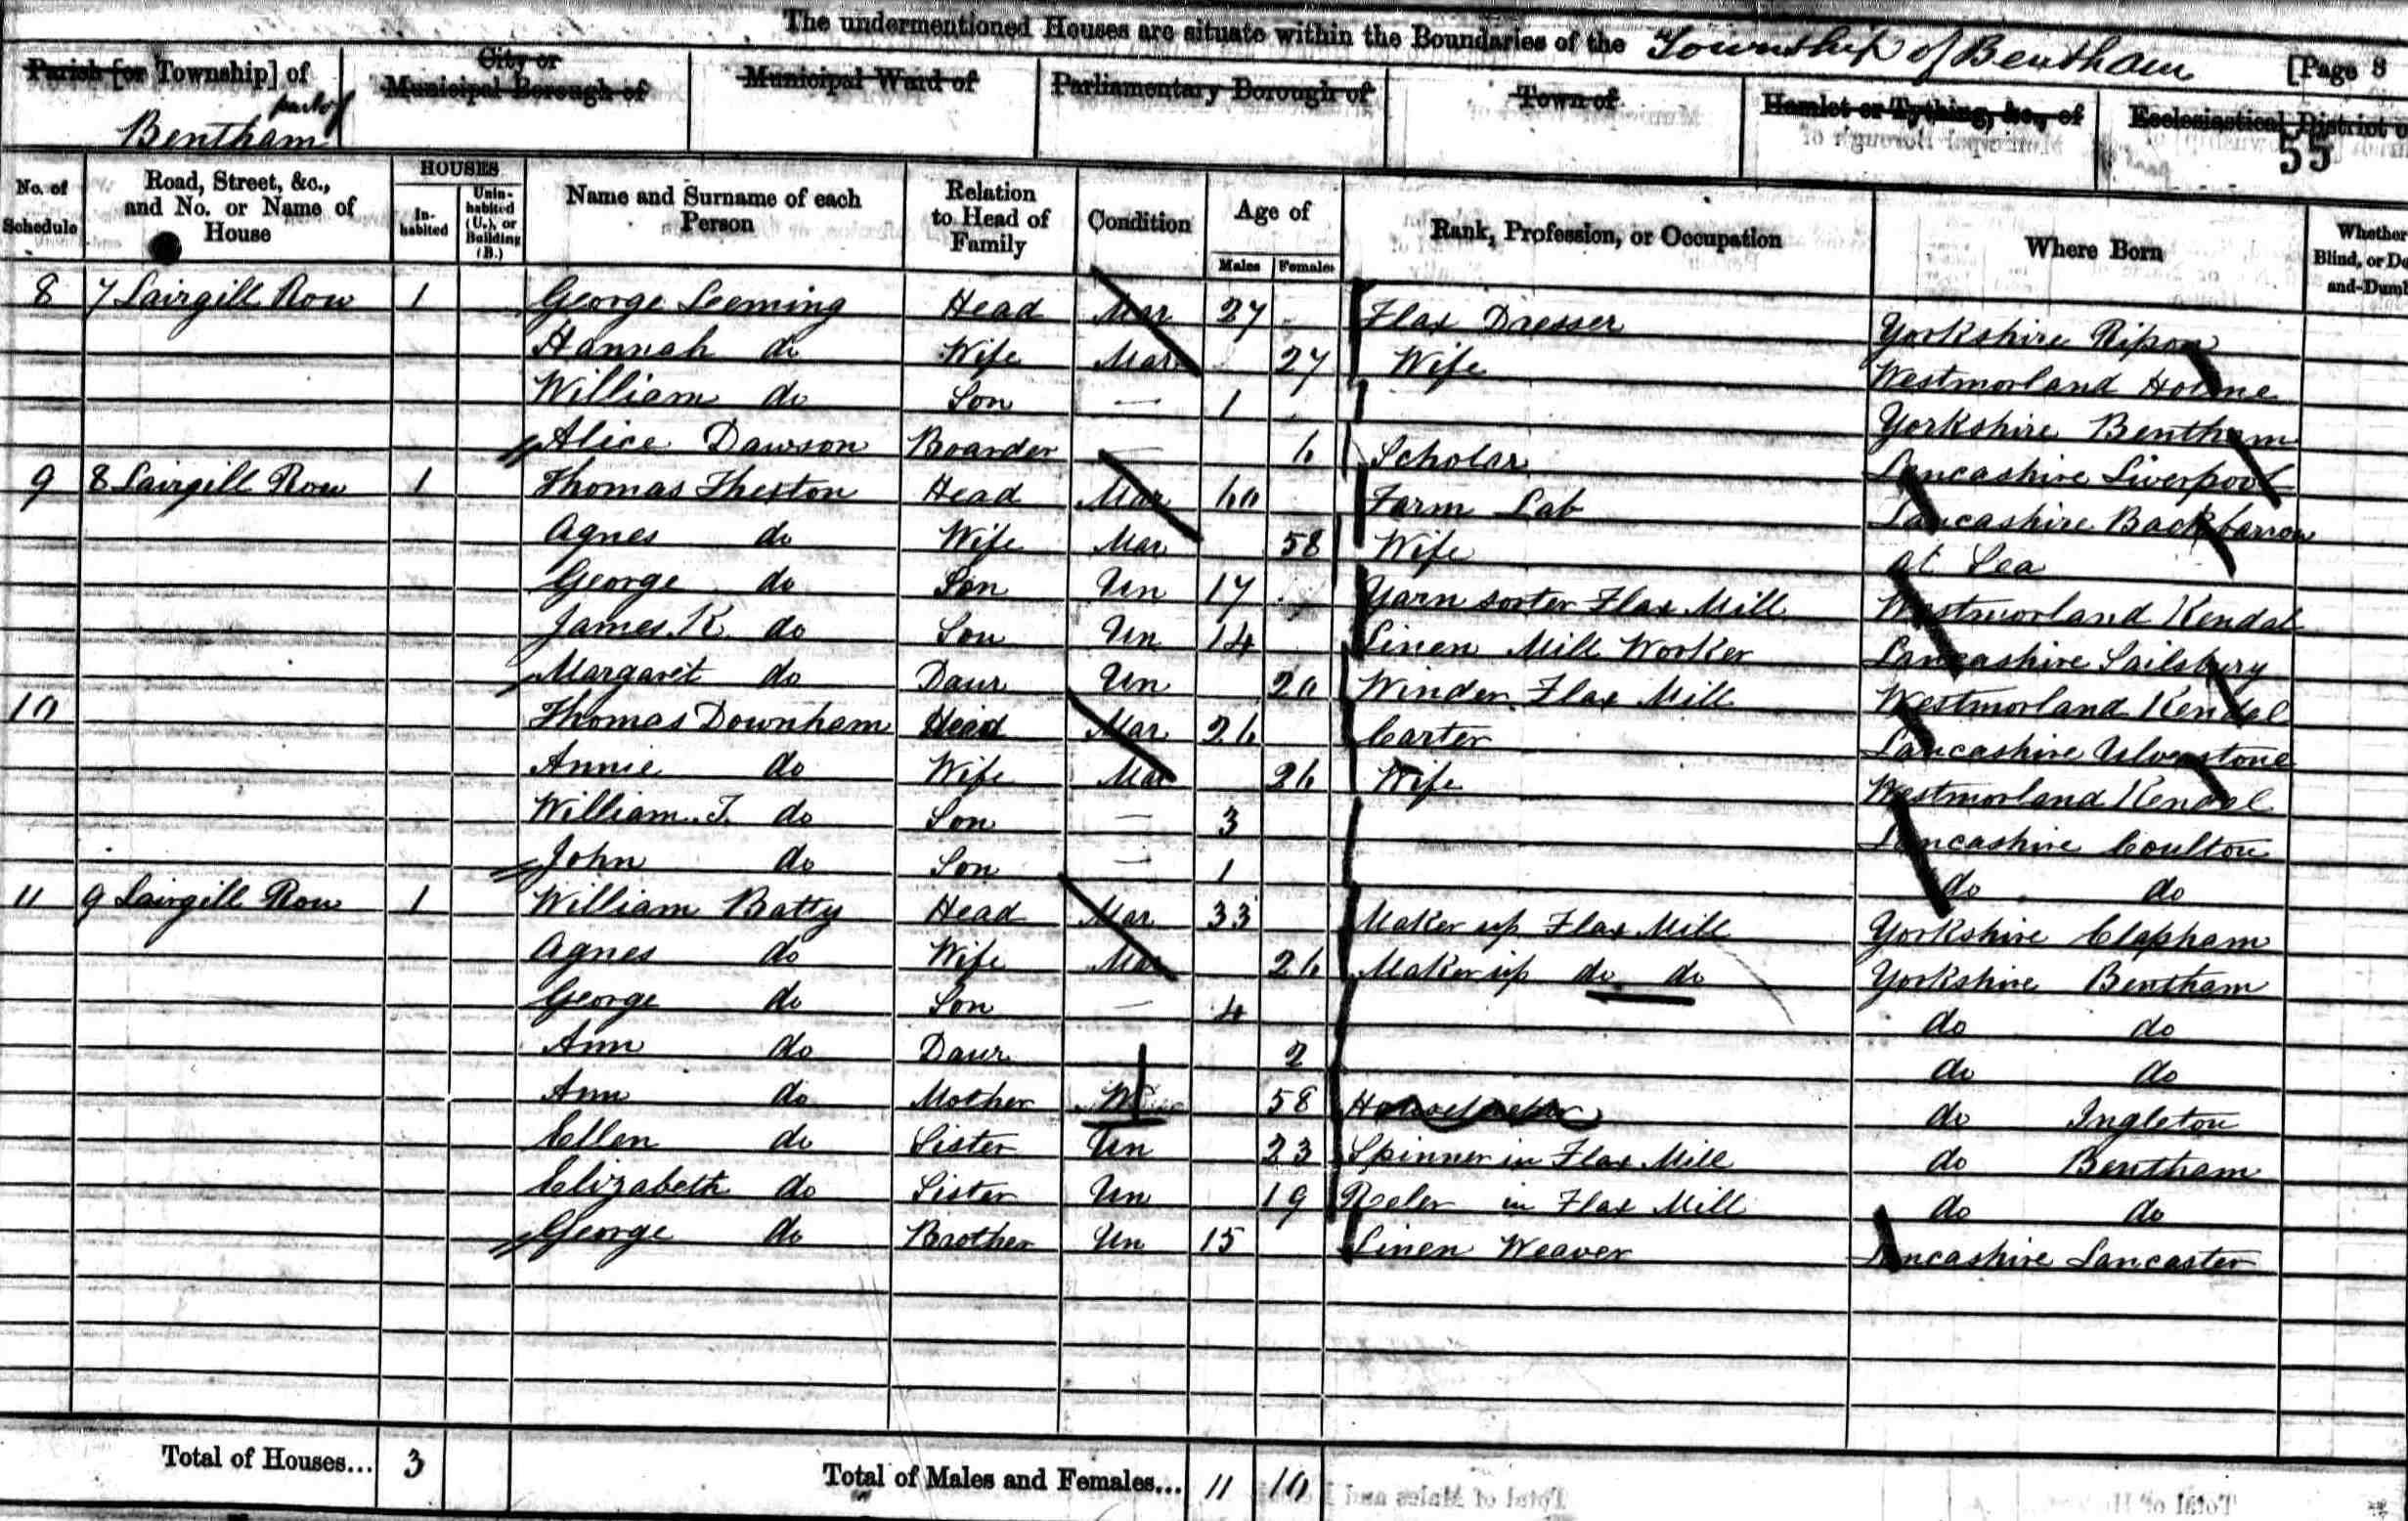 The undermentioned Houses are situate within the Boundaries of the Township of Bentham [Page 8
Parish [or Township] of City or Municipal Borough of Municipal Ward of Parliamentary Borough of Town of Hamlet or Tything, &c., of Ecclesiastical District of
part of
Bentham 55
No. of Schedule Road, Street, &c., and No. or Name of House HOUSES Inhabited Uninhabited (U.), or Building (B.) Name and Surname of each Person Relation to Head of Family Condition Age of Males Females Rank, Profession, or Occupation Where Born Whether Blind, or Deaf-and-Dumb
8 7 Lairgill Row 1 George Leeming Head Mar 27 Flax Dresser Yorkshire Ripon
Hannah do Wife Mar 27 Wife Westmorland Holme
William do Son — 1 Yorkshire Bentham
Alice Dawson Boarder — 6 Scholar Lancashire Liverpool
9 8 Lairgill Row 1 Thomas Thexton Head Mar 60 Farm Lab Lancashire Backbarrow
Agnes do Wife Mar 58 Wife at Sea
George do Son Un 17 Yarn sorter Flax Mill Westmorland Kendal
James K. do Son Un 14 Linen Mill Worker Lancashire Sailsbury
Margaret do Daur Un 20 Winder Flax Mill Westmorland Kendal
10 Thomas Downham Head Mar 26 Carter Lancashire Ulverstone
Annie do Wife Mar 26 Wife Westmorland Kendal
William T. do Son — 3 Lancashire Coulton
John do Son — 1 do do
11 9 Lairgill Row 1 William Batty Head Mar 33 Maker up Flax Mill Yorkshire Clapham
Agnes do Wife Mar 26 Maker up do do Yorkshire Bentham
George do Son — 4 do do
Ann do Daur 2 do do
Ann do Mother W 58 do Ingleton
Ellen do Sister Un 23 Spinner in Flax Mill do Bentham
Elizabeth do Sister Un 19 Reler in Flax Mill do do
George do Brother Un 15 Linen Weaver Lancashire Lancaster
Total of Houses... 3 Total of Males and Females... 11 10